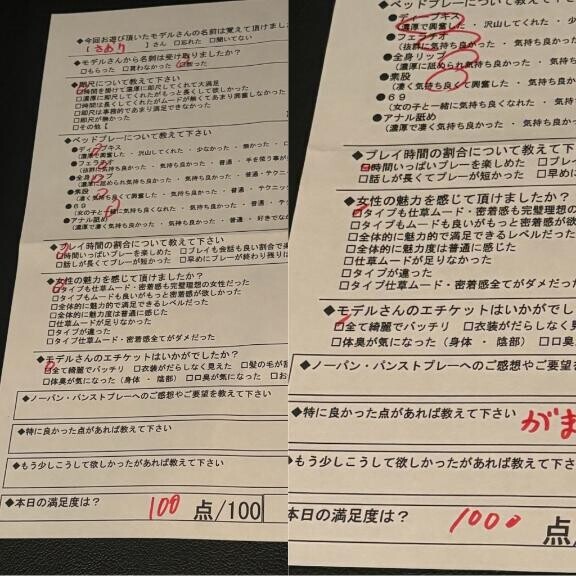 ◆今回お遊び頂いたモデルさんの名前は覚えて頂けまし
【 さあり 】さん □忘れた □聞いてない
◆モデルさんから名刺は受け取りましたか？
□もらった □貰わなかった □断った
◆即尺について教えて下さい
□時間を掛けて濃厚に即尺してくれて大満足
□濃厚に即尺してくれたがもっと長くして欲しかった
□時間は長くしてくれたがムードが無くてあまり興奮しなかった
□即尺は事務的であまり満足できなかった
□即尺が無かった
□その他【
◆ベッドプレーについて教えて下さい
●ディープキス
(濃厚で興奮した ・ 沢山してくれた ・ 少なかった ・ 無かった ・
●フェラチオ
(抜群に気持ち良かった ・ 気持ち良かった ・ 普通 ・ 手を使う事が
●全身リップ
(濃厚に舐められ気持ち良かった ・ 気持ち良かった ・ 普通
●素股
(凄く気持ち良くて興奮した ・ 気持ち良かった ・ 普通 ・ テクニッ
●６９
(女の子と一緒に気持ち良くなれた ・ 気持ち良かった ・ 普通 ・
●アナル舐め
(濃厚で凄く気持ち良かった ・ 気持ち良かった ・ 普通 ・ 好きでな
◆プレイ時間の割合について教えて下さい
□時間いっぱいプレーを楽しめた □プレイも会話も良い割合で楽
□話しが長くてプレーが短かった □早めにプレーが終わり残りは
◆女性の魅力を感じて頂けましたか？
□タイプも仕草ムード・密着感も完璧理想の女性だった
□タイプもムードも良いがもっと密着感が欲しかった
□全体的に魅力的で満足できるレベルだった
□全体的に魅力度は普通に感じた
□仕草ムードが足りなかった
□タイプが違った
□タイプムード・密着感全てがダメだった
◆モデルさんのエチケットはいかがでしたか？
□全て綺麗でバッチリ □衣装がだらしなく見えた □髪の毛が乱
□体臭が気になった (身体 ・ 陰部) □口臭が気になった □お
◆ノーパン・パンストプレーへのご感想やご要望を教えて下さい
◆特に良かった点があれば教えて下さい
◆もう少しこうして欲しかったがあれば教えて下さい
◆本日の満足度は？ 100 点/100
◆ベッドプレーについて教えて下さ
●ディープキス
(濃厚で興奮した ・ 沢山してくれた ・ 少
●フェラチオ
(抜群に気持ち良かった ・ 気持ち良かった
●全身リップ
(濃厚に舐められ気持ち良かった ・ 気
●素股
(凄く気持ち良くて興奮した ・ 気持ち
●６９
(女の子と一緒に気持ち良くなれた ・ 気
●アナル舐め
(濃厚で凄く気持ち良かった ・ 気持ち
◆プレイ時間の割合について教えて下
□時間いっぱいプレーを楽しめた □プレイ
□話しが長くてプレーが短かった □早めに
◆女性の魅力を感じて頂けましたか？
□タイプも仕草ムード・密着感も完璧理想の
□タイプもムードも良いがもっと密着感が欲
□全体的に魅力的で満足できるレベルだった
□全体的に魅力度は普通に感じた
□仕草ムードが足りなかった
□タイプが違った
□タイプムード・密着感全てがダメだった
◆モデルさんのエチケットはいかがでし
□全て綺麗でバッチリ □衣装がだらしなく見
□体臭が気になった (身体 ・ 陰部) □口臭
◆ノーパン・パンストプレーへのご感想やご要望
◆特に良かった点があれば教えて下さい がま
◆もう少しこうして欲しかったがあれば教えて下さい
本日の満足度は？ 1000 点/